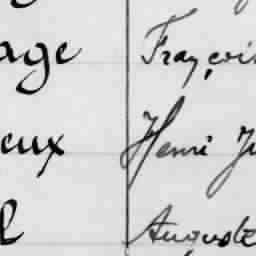 age Françoi
eux Henri Ju
l Auguste